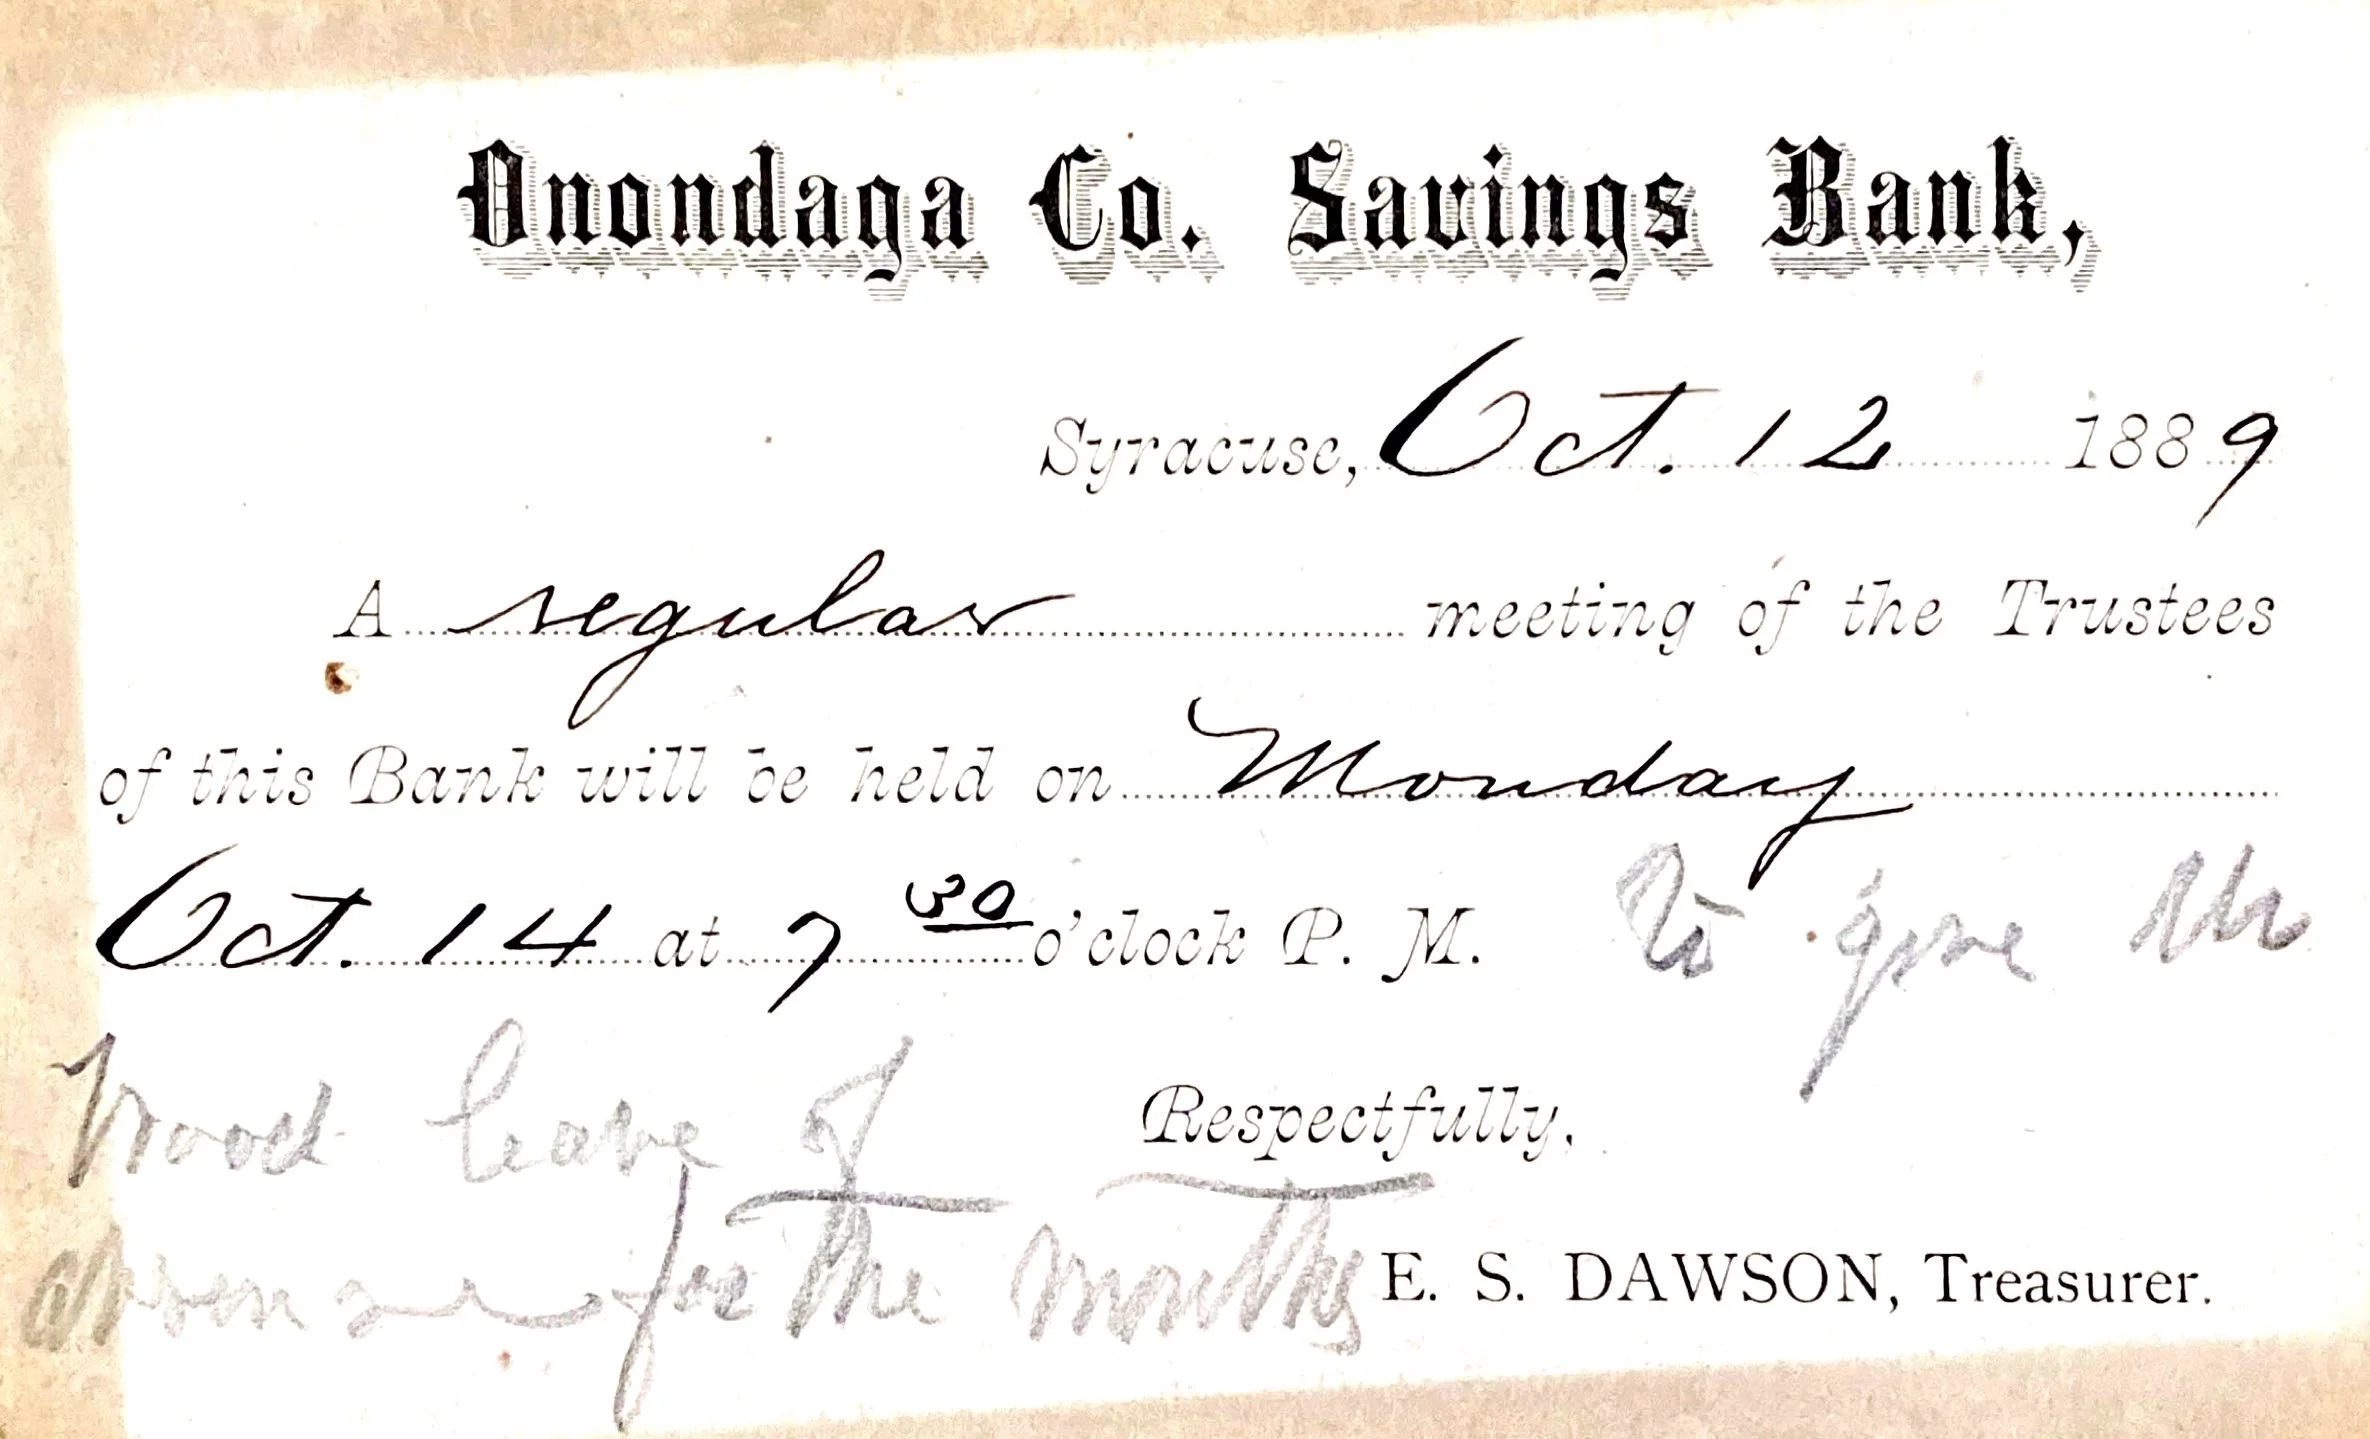 Onondaga Co. Savings Bank,
Syracuse, Oct. 12 1889
A regular meeting of the Trustees
of this Bank will be held on Monday
Oct. 14 at 7 30 o'clock P. M. To give
Wood leave of
Respectfully,
absence for months
E. S. DAWSON, Treasurer.